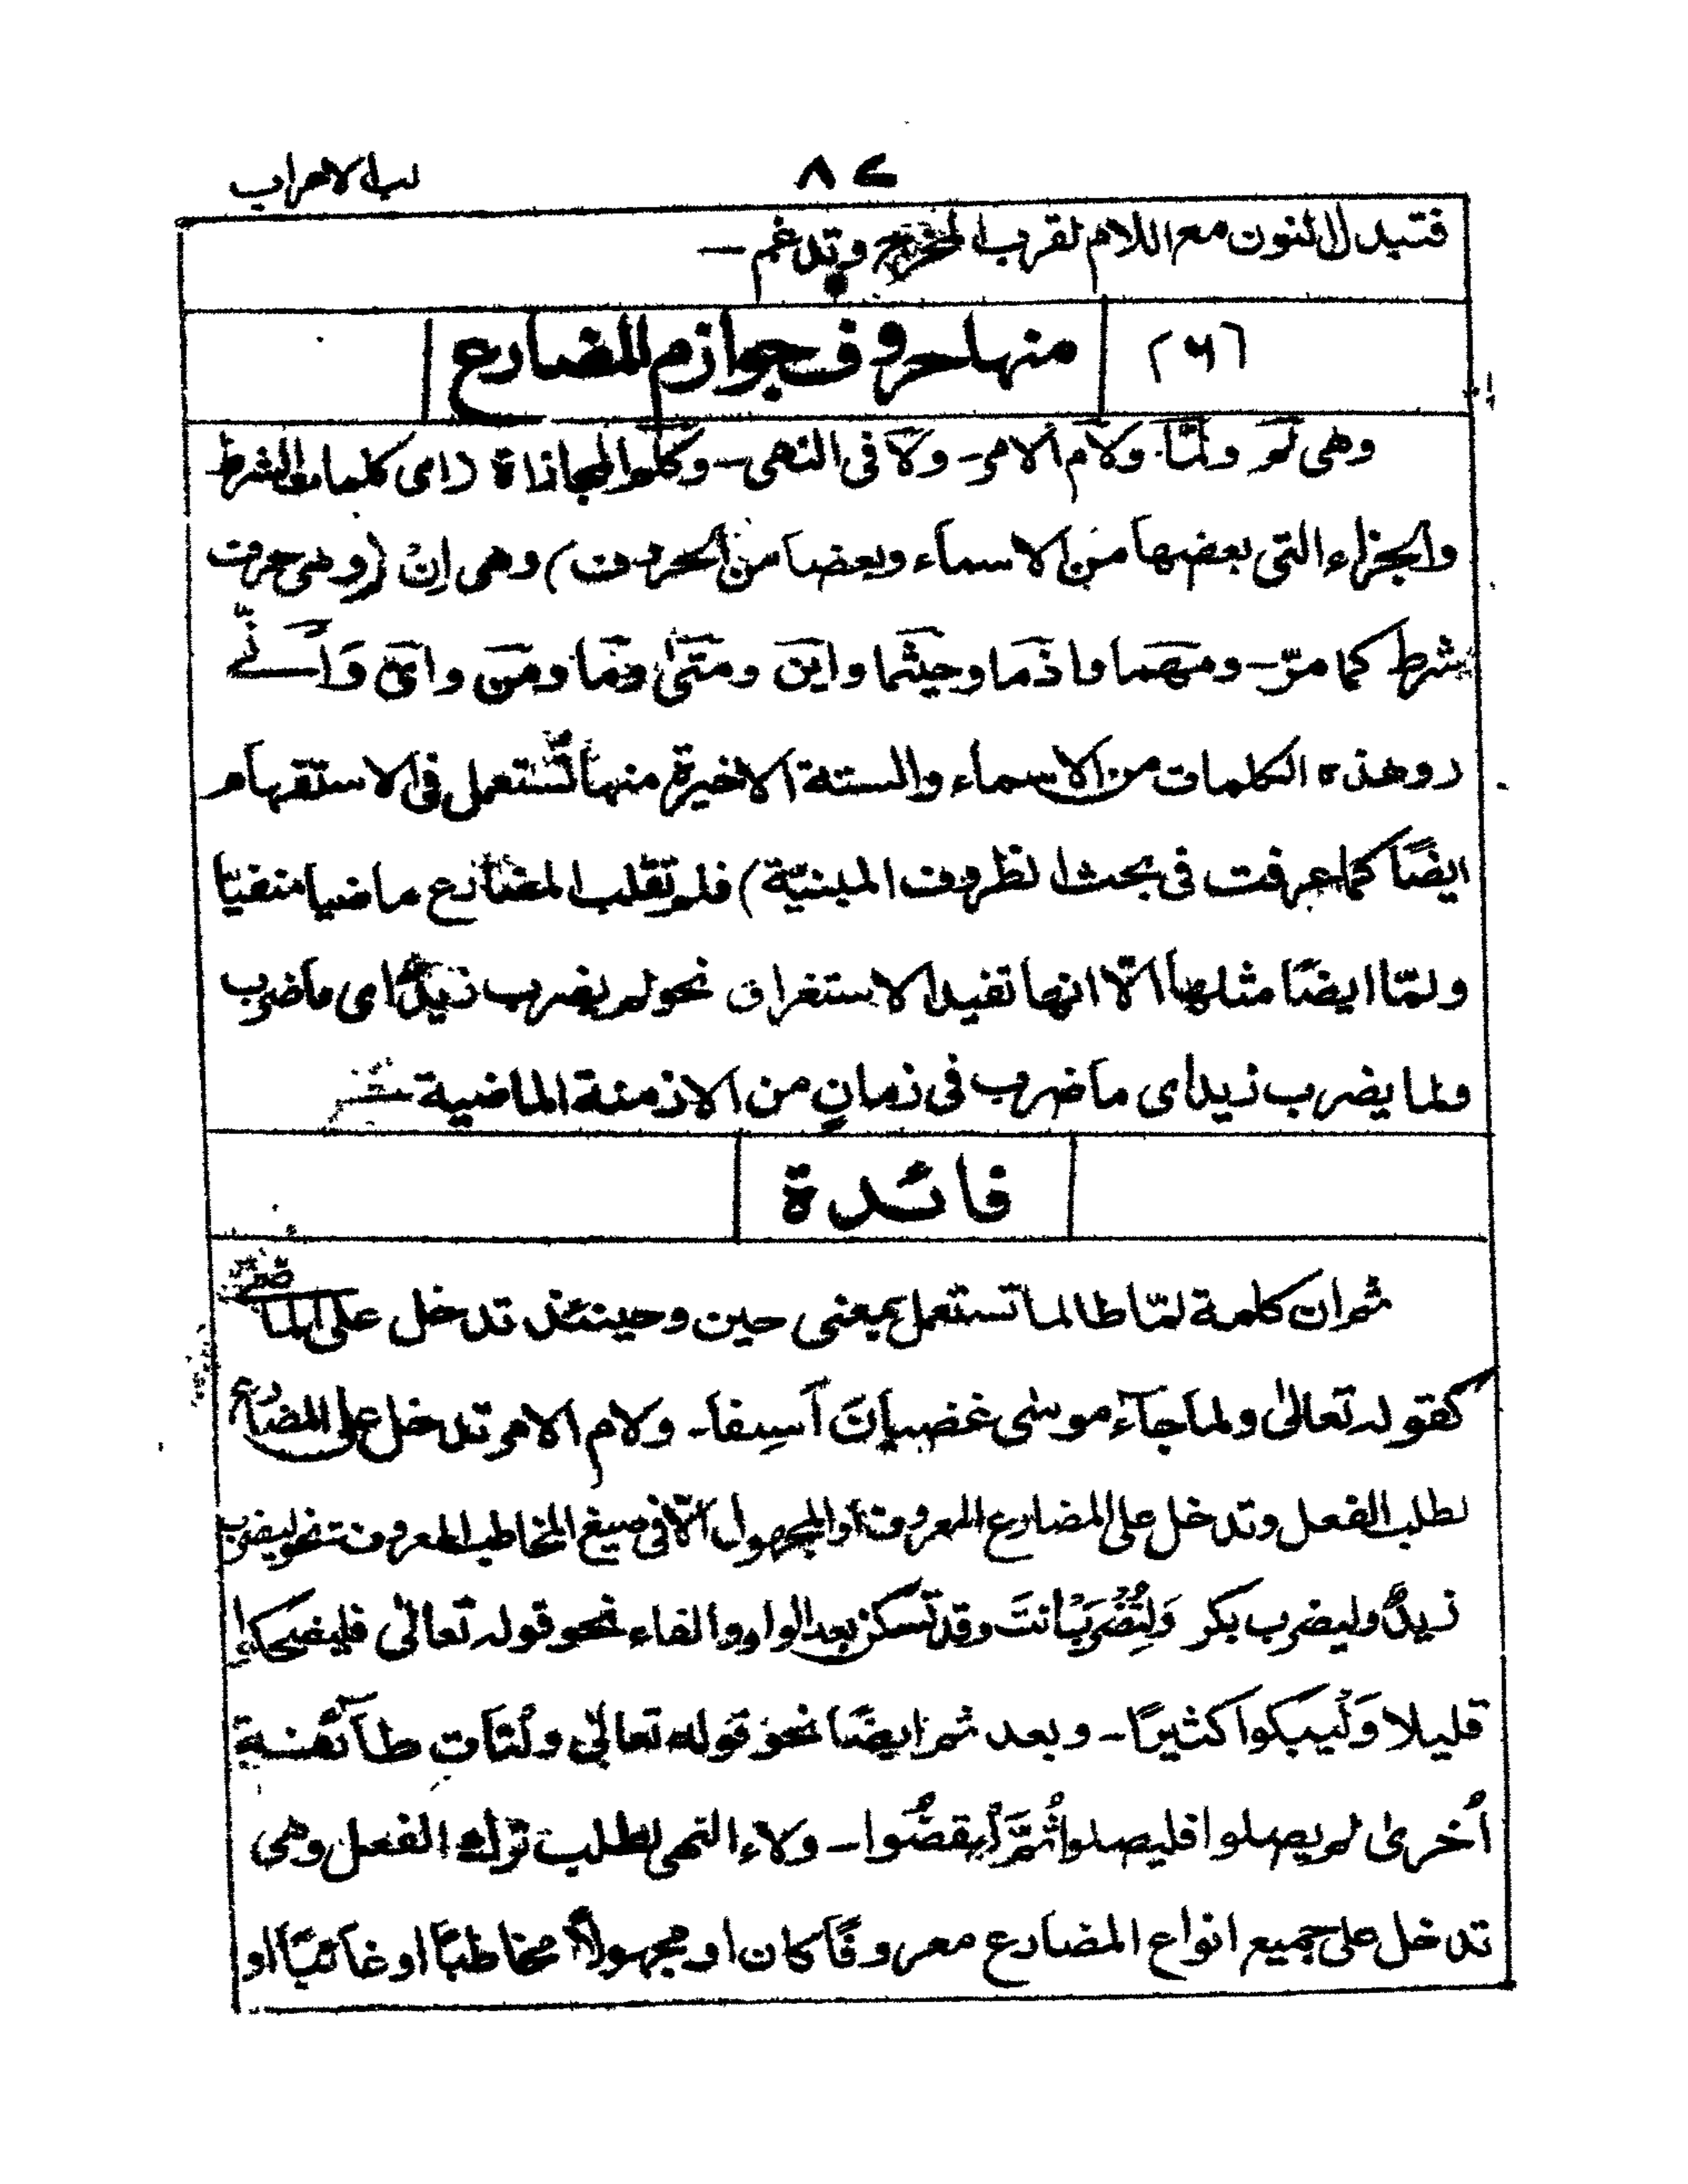 ٨٤ لب الاعراب
فتبدل النون مع اللام لقرب المخرج وتدغم —
٢٦٦ منها حروف جوازم المضارع
وهى لَمْ ولَمَّا۔ ولام الامر۔ ولَا فى النهى۔ وكلم المجازاة (اى كلمات الشرط
والجزاء التى بعضها من الاسماء وبعضا من الحروف) وهى اِنْ (وهى حرف
شرط كما مرّ۔ ومَهما واذما وحيثما واَين ومَتىٰ ومَا ومَن واىّ وَاَنّٰے
(وهذه الكلمات من الاسماء والستة الاخيرة منها تستعمل فى الاستفهام
ايضًا كما عرفت فى بحث الظروف المبنيّة) فلم تقلب المضارع ماضيا منفيّا
ولمّا ايضًا مثلها الّا انها تفيد الاستغراق نحو لم يضرب زيدٌ اى ما ضرب
ولما يضرب زيد اى ما ضرب فى زمانٍ من الازمنة الماضية
فائدة
ثم ان كلمة لمّا طالما تستعمل بمعنى حين وحينئذ تدخل على الماضى
كقوله تعالىٰ ولما جآءَ موسٰى غضبانَ اَسِفا۔ ولام الامر تدخل على المضارع
لطلب الفعل وتدخل على المضارع المعروف او المجهول الّا فى صيغ المخاطب المعروف نحو ليضرب
زيدٌ وليضرب بكر وَلِتُضْرَبْ انتَ وقد تسكن بعد الواو والفاء نحو قوله تعالىٰ فليضحكوا
قليلا وَلْيبكوا كثيرًا۔ وبعد ثم ايضًا نحو قوله تعالىٰ ولْتَأت طآئفة
اُخرىٰ لم يصلوا فليصلوا ثُمَّ لْيقضُوا۔ ولاء النهى لطلب ترك الفعل وهى
تدخل على جميع انواع المضارع معروفًا كان او مجهولاً مخاطبًا او غائبًا او